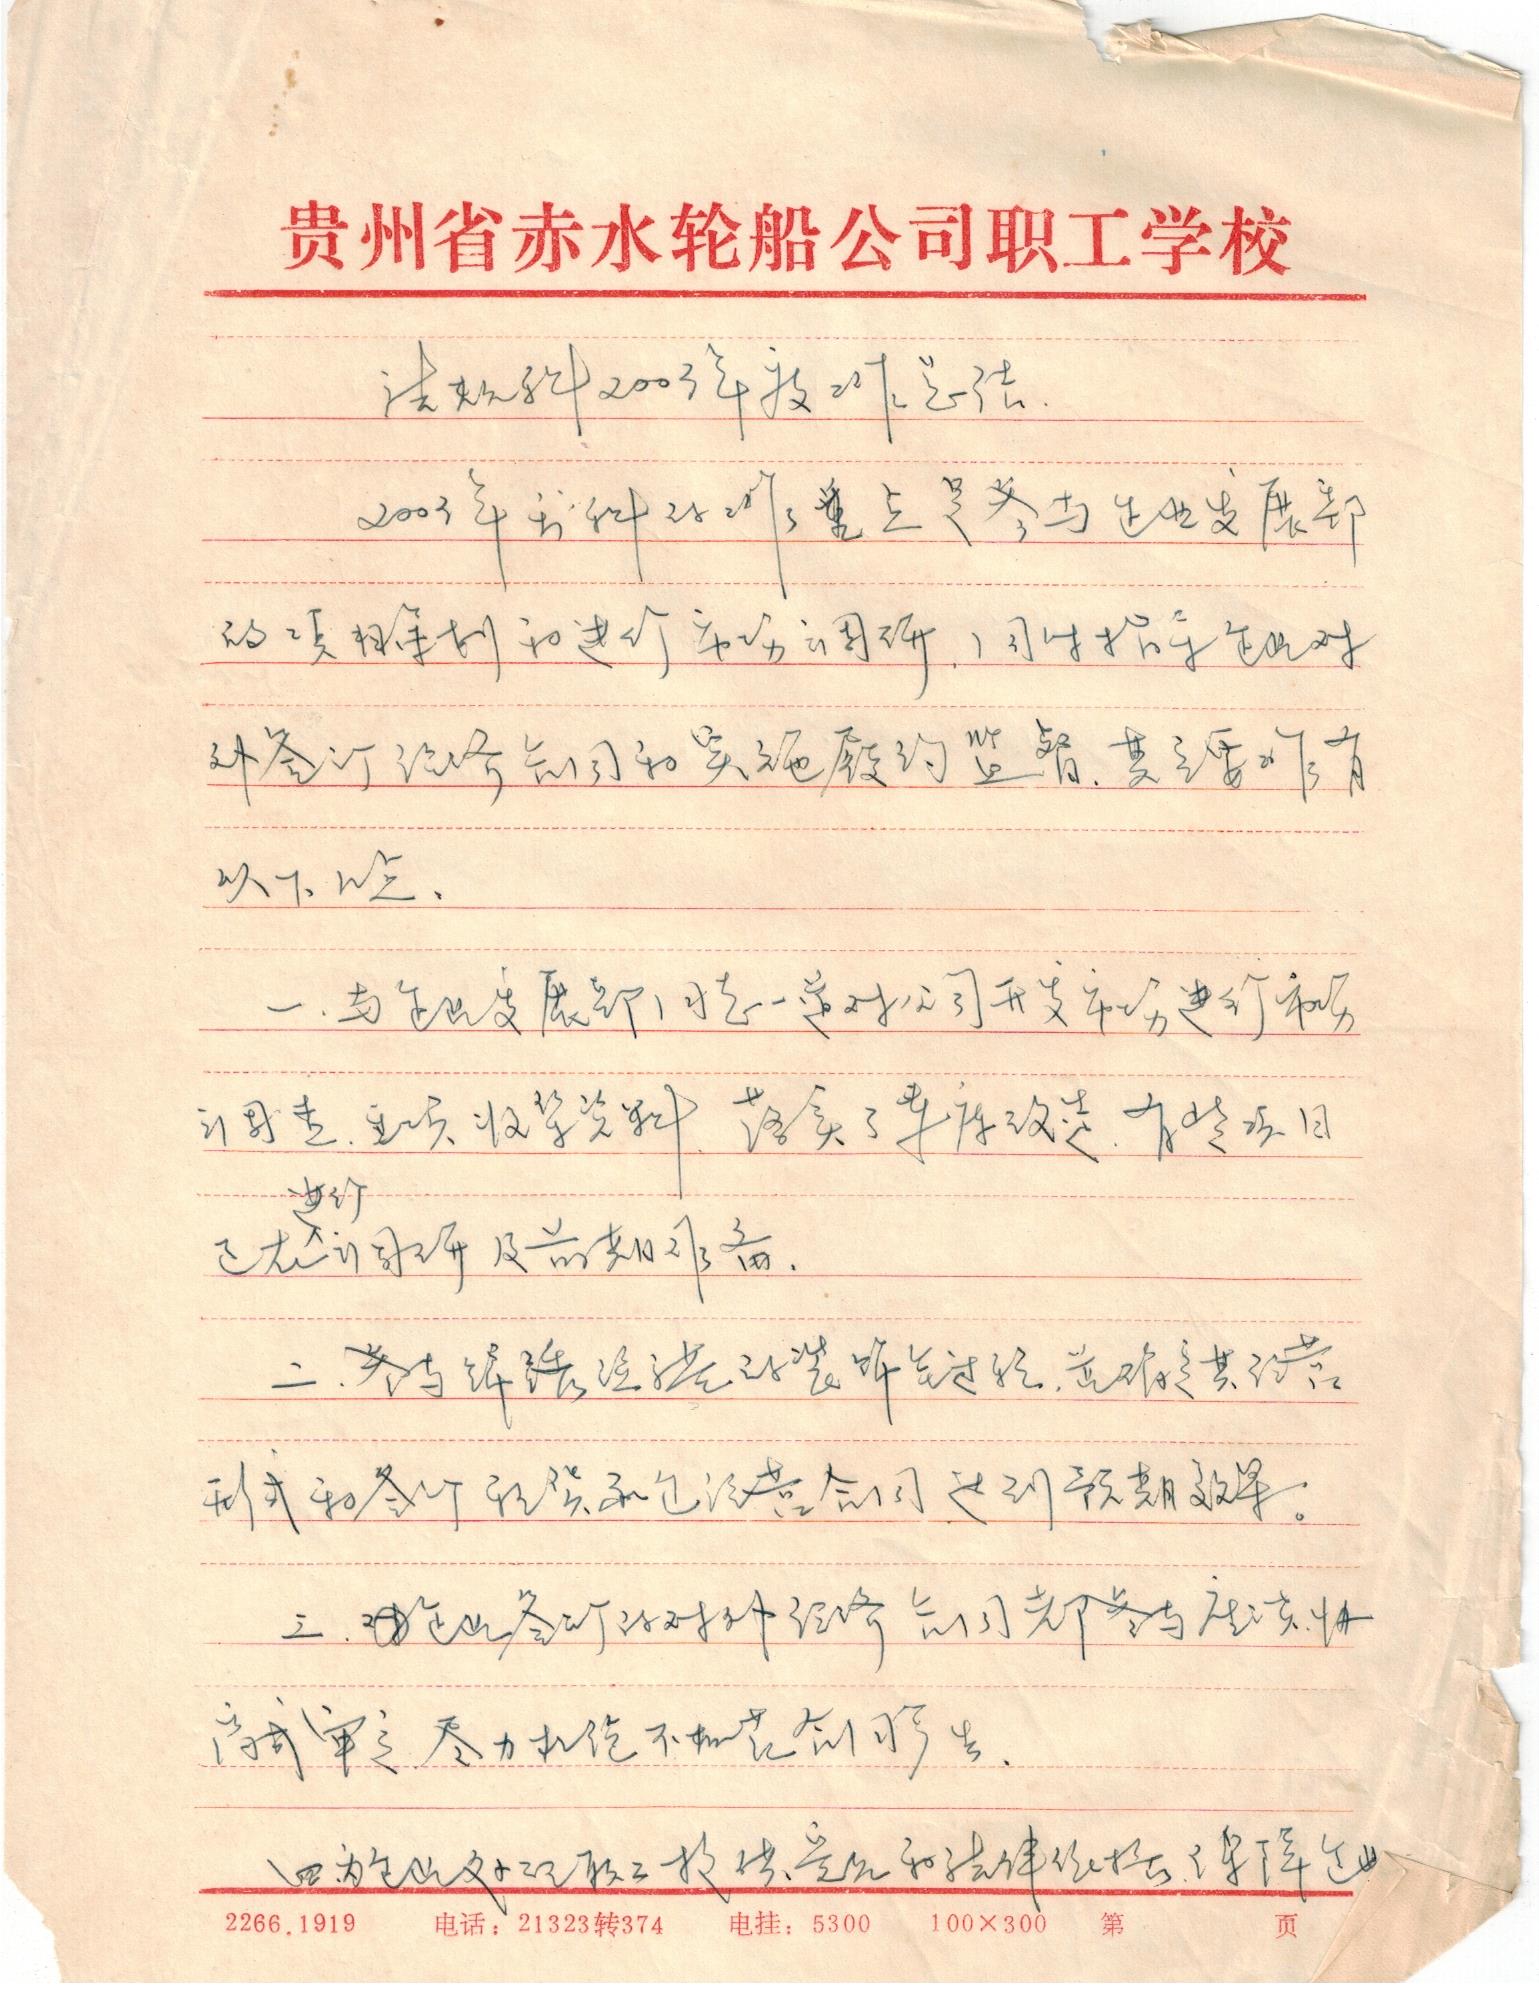 贵州省赤水轮船公司职工学校
法规科2003年度工作总结.
2003年我科的工作重点是参与企业发展部
的项目策划和进行市场调研,同时指导企业对
外签订经济合同和实施履约监督.其主要工作有
以下几点.
一.与企业发展部同志一道对公司开发市场进行市场
调查.立项.收集资料.落实了车库改造.有些项目
进行
已在调研及前期准备.
二.参与的装饰全过程.并确定其经营
形式和签订租赁承包经营合同达到预期效果。
三.企业签订的对外经济合同都参与座谈.协
商或审定.尽力杜绝不规范合同产生.
四.为企业处理职工提供意见和法律依据.保障企业
2266.1919 电话:21323转374 电挂:5300 100×300 第 页